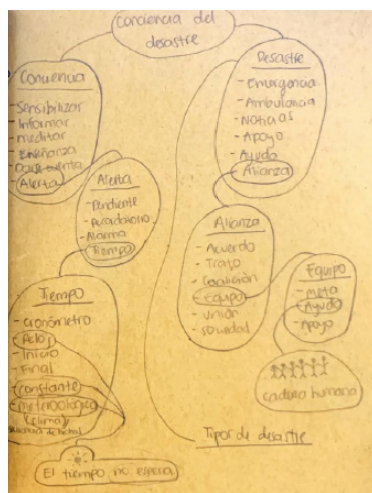 conciencia del
desastre
Conciencia
- Sensibilizar
- Informar
- meditar
- Enseñanza
- Alerta
Alerta
- Pendiente
- Recordatorio
- Alarma
- Tiempo
Tiempo
- cronómetro
- Reloj
- Inicio
- Final
- constante
- meteorológico
(clima)
El tiempo no espera
Desastre
- Emergencia
- Ambulancia
- Noticias
- Apoyo
- Ayuda
- Alianza
Alianza
- Acuerdo
- Trato
- Coalición
- Equipo
- Unión
- sociedad
Equipo
- Meta
- Ayuda
- Apoyo
cadena humana
Tipos de desastre